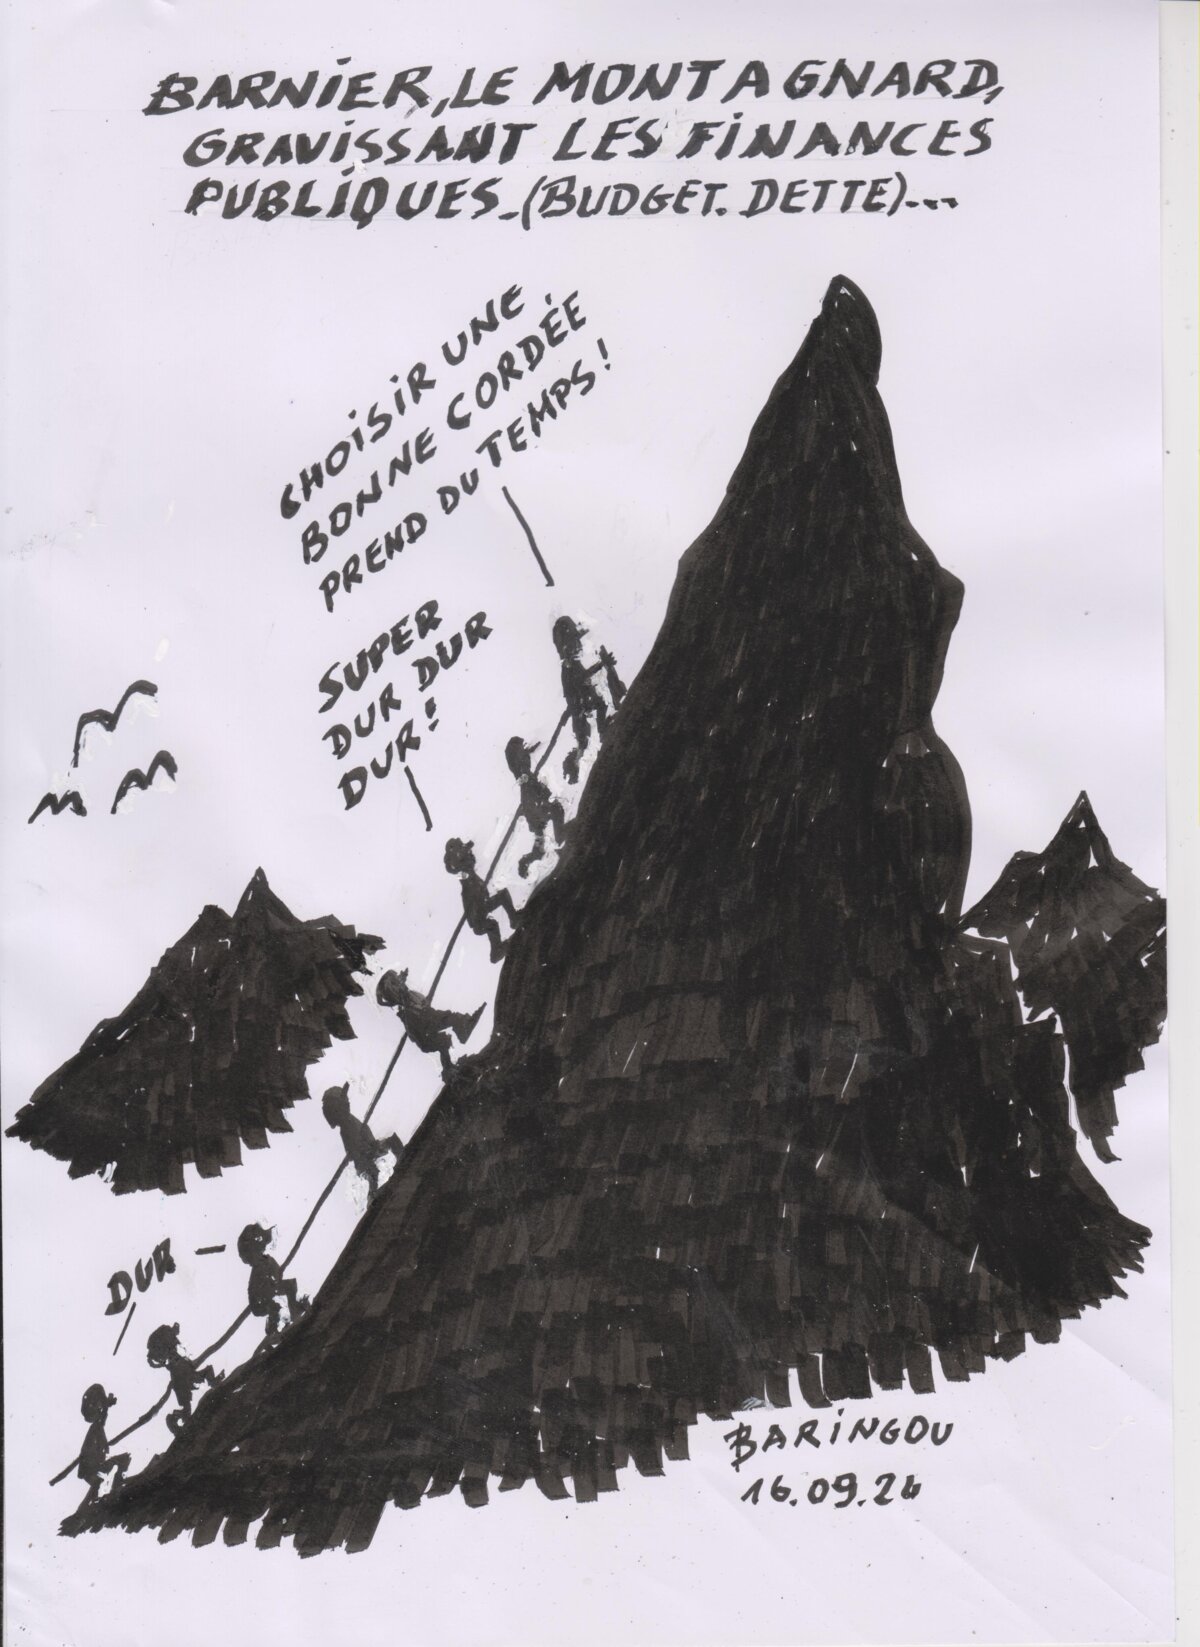 BARNiER, LE MONTAGNARD,
GRAVISSANT LES FiNANCES
PUBLiQUES_(BUDGET. DETTE)...
CHOiSiR UNE
BONNE CORDÉE
PREND DU TEMPS!
SUPER
DUR DUR
DUR!
DUR
BARiNGOU
16.09.24